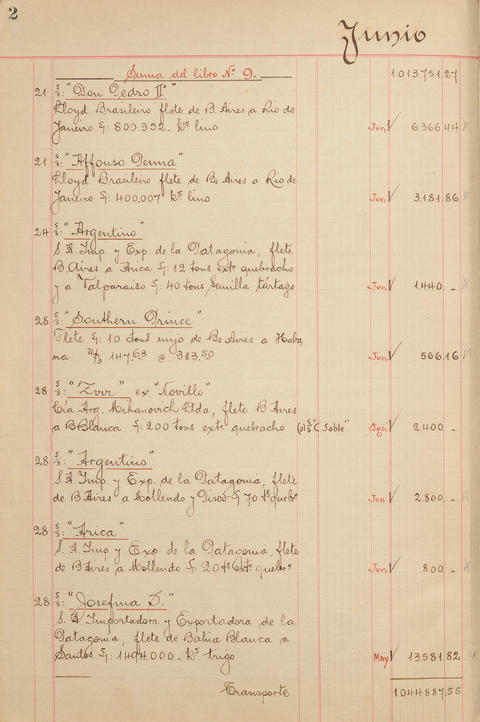 2
Junio
Suma del libro Nº 9. 1013751.27
21 s/s: "Don Pedro IIº"
Lloyd Brasileiro flete de B. Aires a Rio de
Janeiro S/: 800.352 - Ks lino Jun 6.366.44
21 s/s: "Affonso Penna"
Lloyd Brasileiro flete de Bs Aires a Rio de
Janeiro S/: 400.007 Ks lino Jun 3.181.86
24 s/s: "Argentino"
S. A. Imp. y Exp. de la Patagonia, flete
B. Aires a Arica S/: 12 tons extº quebracho
y a Valparaiso S/: 40 tons Semilla tártago Jun 1.440 -
28 s/s: "Southern Prince"
Flete S/: 10 tons mijo de Bs Aires a Haba
na 147.63 @ 383.50 Jun 566.16
28 s/s: "Zvir" ex "Novillo"
Cía Arg. Mihanovich Ltda, flete B Aires
a BBlanca S/: 200 tons extº quebracho "C. Soble" Ago. 2.400 -
28 s/s: "Argentino"
S. A. Imp. y Exp. de la Patagonia, flete
de B Aires a Mollendo y Pisco S/ 70 ts quebrº Jun 2.800. -
28 s/s: "Arica"
S. A. Imp. y Exp. de la Patagonia, flete
de B Aires a Mollendo S/: 20 ts Extº quebrº Jun 800 -
28 s/s: "Josefina S."
S. A Importadora y Exportadora de la
Patagonia, flete de Bahia Blanca a
Santos S/: 1494.000 - Ks trigo May 13581.82
Transporte 1044887.55